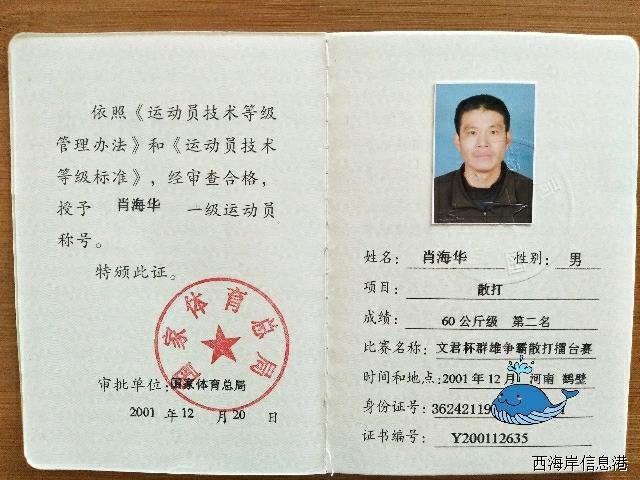 依照《运动员技术等级
管理办法》和《运动员技术
等级标准》，经审查合格，
授予 肖海华 一级运动员
称号。
特颁此证。
国家体育总局
审批单位:国家体育总局
2001 年 12 月 20 日
姓名: 肖海华 性别: 男
项目: 散打
成绩: 60公斤级 第二名
比赛名称: 文君杯群雄争霸散打擂台赛
时间和地点: 2001年12月 河南 鹤壁
身份证号: 36242119
证书编号: Y200112635
西海岸信息港